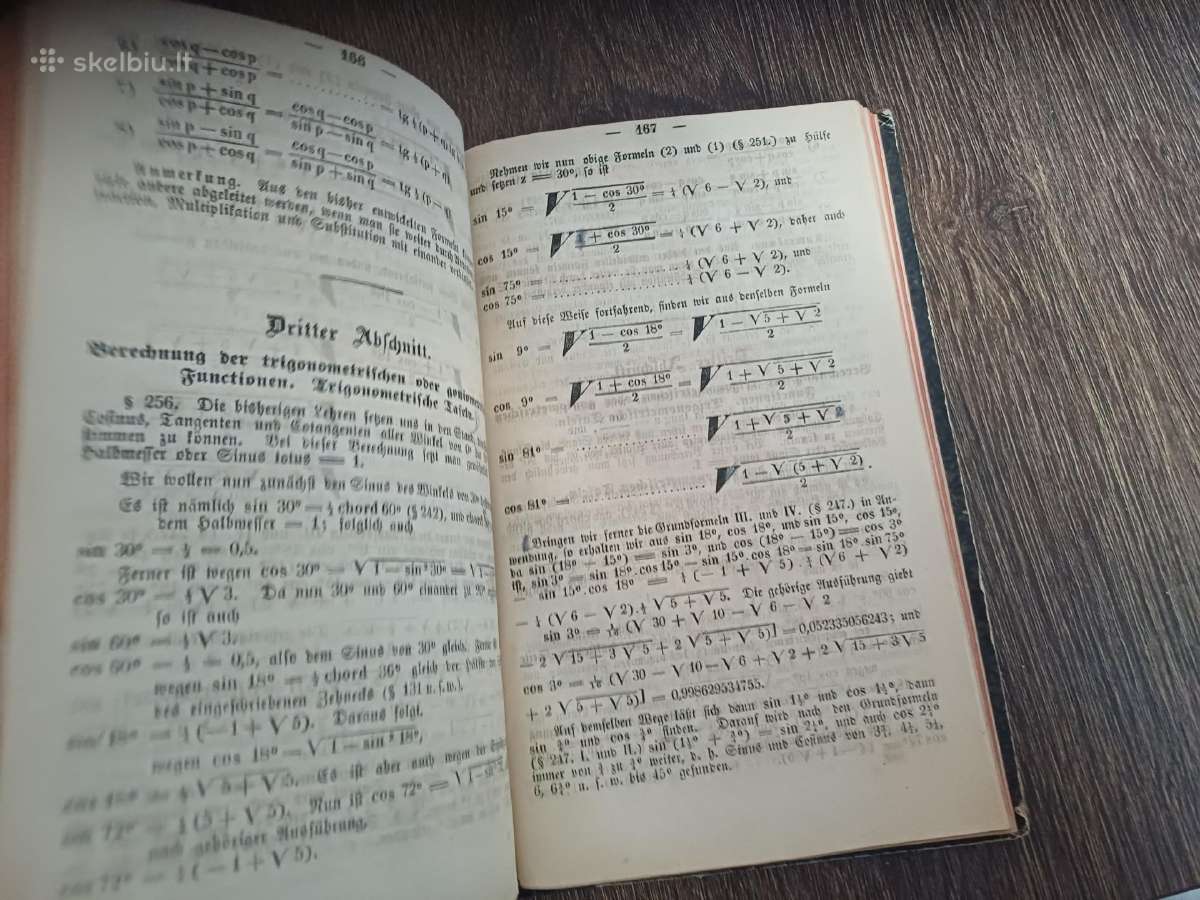 skelbiu.lt
— 166 —
cos q — cos p
cos q + cos p =
sin p + sin q
cos p + cos q = cos q — cos p
sin p — sin q = tg ½ (p + q)
sin p — sin q
cos p + cos q = cos q — cos p
sin p + sin q = tg ½ (p — q)
Anmerkung. Aus den bisher entwickelten Formeln
andere abgeleitet werden, wenn man sie weiter durch
Multiplikation und Substitution mit einander
Dritter Abschnitt.
Berechnung der trigonometrischen oder
Functionen. Trigonometrische Tafeln.
§ 256. Die bisherigen Lehren setzen uns in den Stand,
Cosinus, Tangenten und Cotangenten aller Winkel von
zu können. Bei dieser Berechnung setzt man
Halbmesser oder Sinus totus = 1.
Wir wollen nun zunächst den Sinus des Winkels von 30°
Es ist nämlich sin 30° = ½ chord 60° (§ 242), und chord
dem Halbmesser = 1; folglich auch
sin 30° = ½ = 0,5.
Ferner ist wegen cos 30° = √1 — sin² 30° =
cos 30° = ½ √3. Da nun 30° und 60° einander zu 90°
so ist auch
sin 60° = ½ √3.
cos 60° = ½ = 0,5, also dem Sinus von 30° gleich.
wegen sin 18° = ½ chord 36° gleich der Hälfte
des eingeschriebenen Zehnecks (§ 131 u. s. w.),
sin 18° = ¼ (— 1 + √5). Daraus folgt,
wegen cos 18° = √1 — sin² 18°,
√5 + √5. Es ist aber auch wegen der
(5 + √5). Nun ist cos 72° =
nach gehöriger Ausführung,
cos 72° = ¼ (— 1 + √5).
— 167 —
Nehmen wir nun obige Formeln (2) und (1) (§ 251.) zu Hülfe
und setzen z = 30°, so ist
sin 15° = √1 — cos 30°/2 = ¼ (√6 — √2), und
cos 15° = √1 + cos 30°/2 = ¼ (√6 + √2), daher auch
sin 75° = .......... ¼ (√6 + √2), und
cos 75° = .......... ¼ (√6 — √2).
Auf diese Weise fortfahrend, finden wir aus denselben Formeln
sin 9° = √1 — cos 18°/2 = √1 — √5 + √2/2
cos 9° = √1 + cos 18°/2 = √1 + √5 + √2/2
sin 81° = .......... √1 + √5 + √2/2
cos 81° = .......... √1 — √(5 + √2)/2.
Bringen wir ferner die Grundformeln III. und IV. (§ 247.) in An-
wendung, so erhalten wir aus sin 18°, cos 18°, und sin 15°, cos 15°,
da sin (18° — 15°) = sin 3°, und cos (18° — 15°) = cos 3°
ist, sin 3° = sin 18°. cos 15° — sin 15°. cos 18° = sin 18°. sin 75°
— sin 15°. cos 18° = ¼ (— 1 + √5) . ¼ (√6 + √2)
— ¼ (√6 — √2). ¼ √5 + √5. Die gehörige Ausführung giebt
sin 3° = 1/16 (√30 + √10 — √6 — √2
— 2 √15 + 3 √5 + 2 √5 + √5)] = 0,052335056243; und
cos 3° = 1/16 (√30 — √10 — √6 + √2 + 2 √15 + 3 √5
+ 2 √5 + √5)] = 0,998629534755.
Auf demselben Wege läßt sich dann sin 1½° und cos 1½°, dann
sin ¾° und cos ¾° finden. Darauf wird nach den Grundformeln
(§ 247. I. und II.) sin (1½° + ¾°) = sin 2¼°, und auch cos 2¼°
immer von ¾ zu ¾° weiter, d. h. Sinus und Cosinus von 3¾, 4½, 5¼,
6, 6¾° u. s. w. bis 45° gefunden.